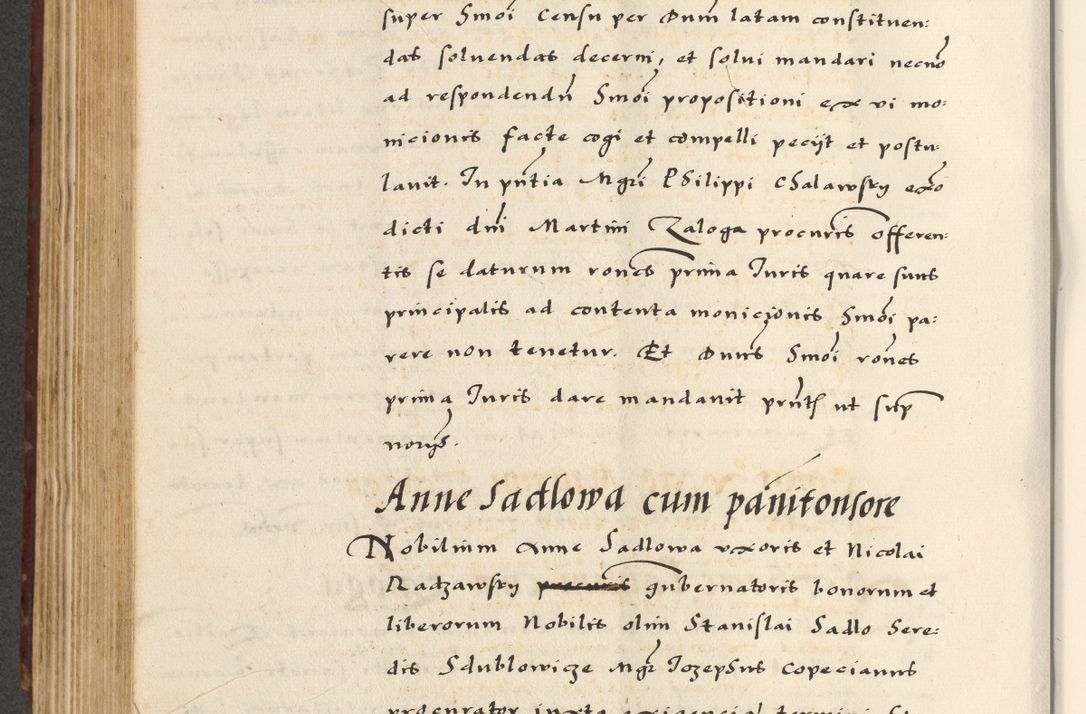 super Smoi Censu per Dum latam constituen:
das soluendas decerni, et solui mandari necno
ad respondendu Smoi propositioni ex vi mo:
nicionis facte cogi et compelli peciit et postu:
lauit. In pntia Mgri Philippi Chalawsky
dicti dni Martini Zaloga procuris offeren:
tis se daturum rones prima Iuris quare suus
principalis ad contenta monicionis Smoi pa:
rere non tenetur. Et Dnus Smoi rones
prima Iuris dare mandauit ut sup
Anne Sadlowa cum panitonsore
Nobilium Anne Sadlowa vxoris et Nicolai
Radzawsky gubernatoris bonorum et
liberorum Nobilis olim Stanislai Sadlo Sere:
dis Sdublowicze Mgr Iozephus Copecianus
procurator iuxta exigencia termini